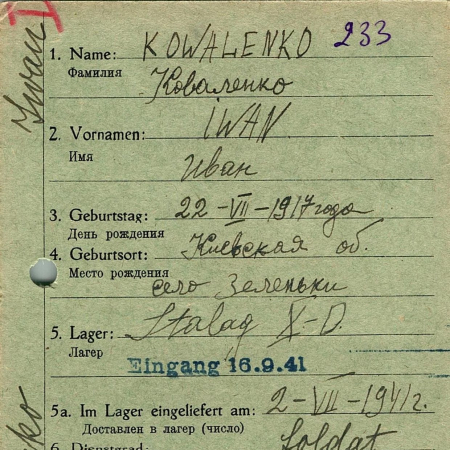 I
Iwan
233
1. Name: KOWALENKO
Фамилия Коваленко
2. Vornamen: IWAN
Имя Иван
3. Geburtstag: 22-VII-1917 года
День рождения
4. Geburtsort: Киевская об.
Место рождения
село Зеленьки
5. Lager: Stalag X-D.
Лагер
Eingang 16.9.41
5a. Im Lager eingeliefert am: 2-VII-1941г.
Доставлен в лагер (число)
6. Dienstgrad: Soldat
ko